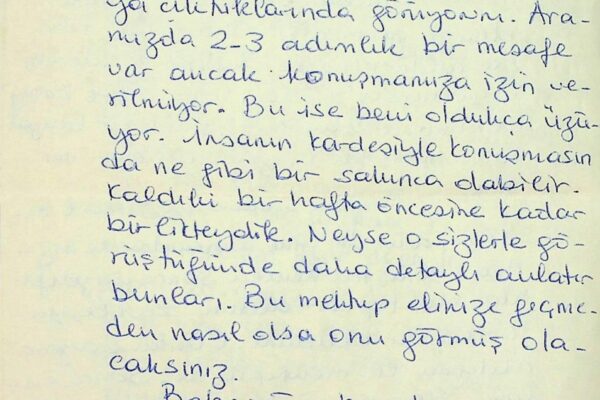 ya çıktıklarında görüyorum. Ara-
mızda 2-3 adımlık bir mesafe
var ancak konuşmamıza izin ve-
rilmiyor. Bu ise beni oldukça üzü-
yor. İnsanın kardeşiyle konuşmasın
da ne gibi bir sakınca olabilir.
Kaldıki bir hafta öncesine kadar
birlikteydik. Neyse o sizlerle gö-
rüştüğünde daha detaylı anlatır
bunları. Bu mektup elinize geçme-
den nasıl olsa onu görmüş ola-
caksınız.